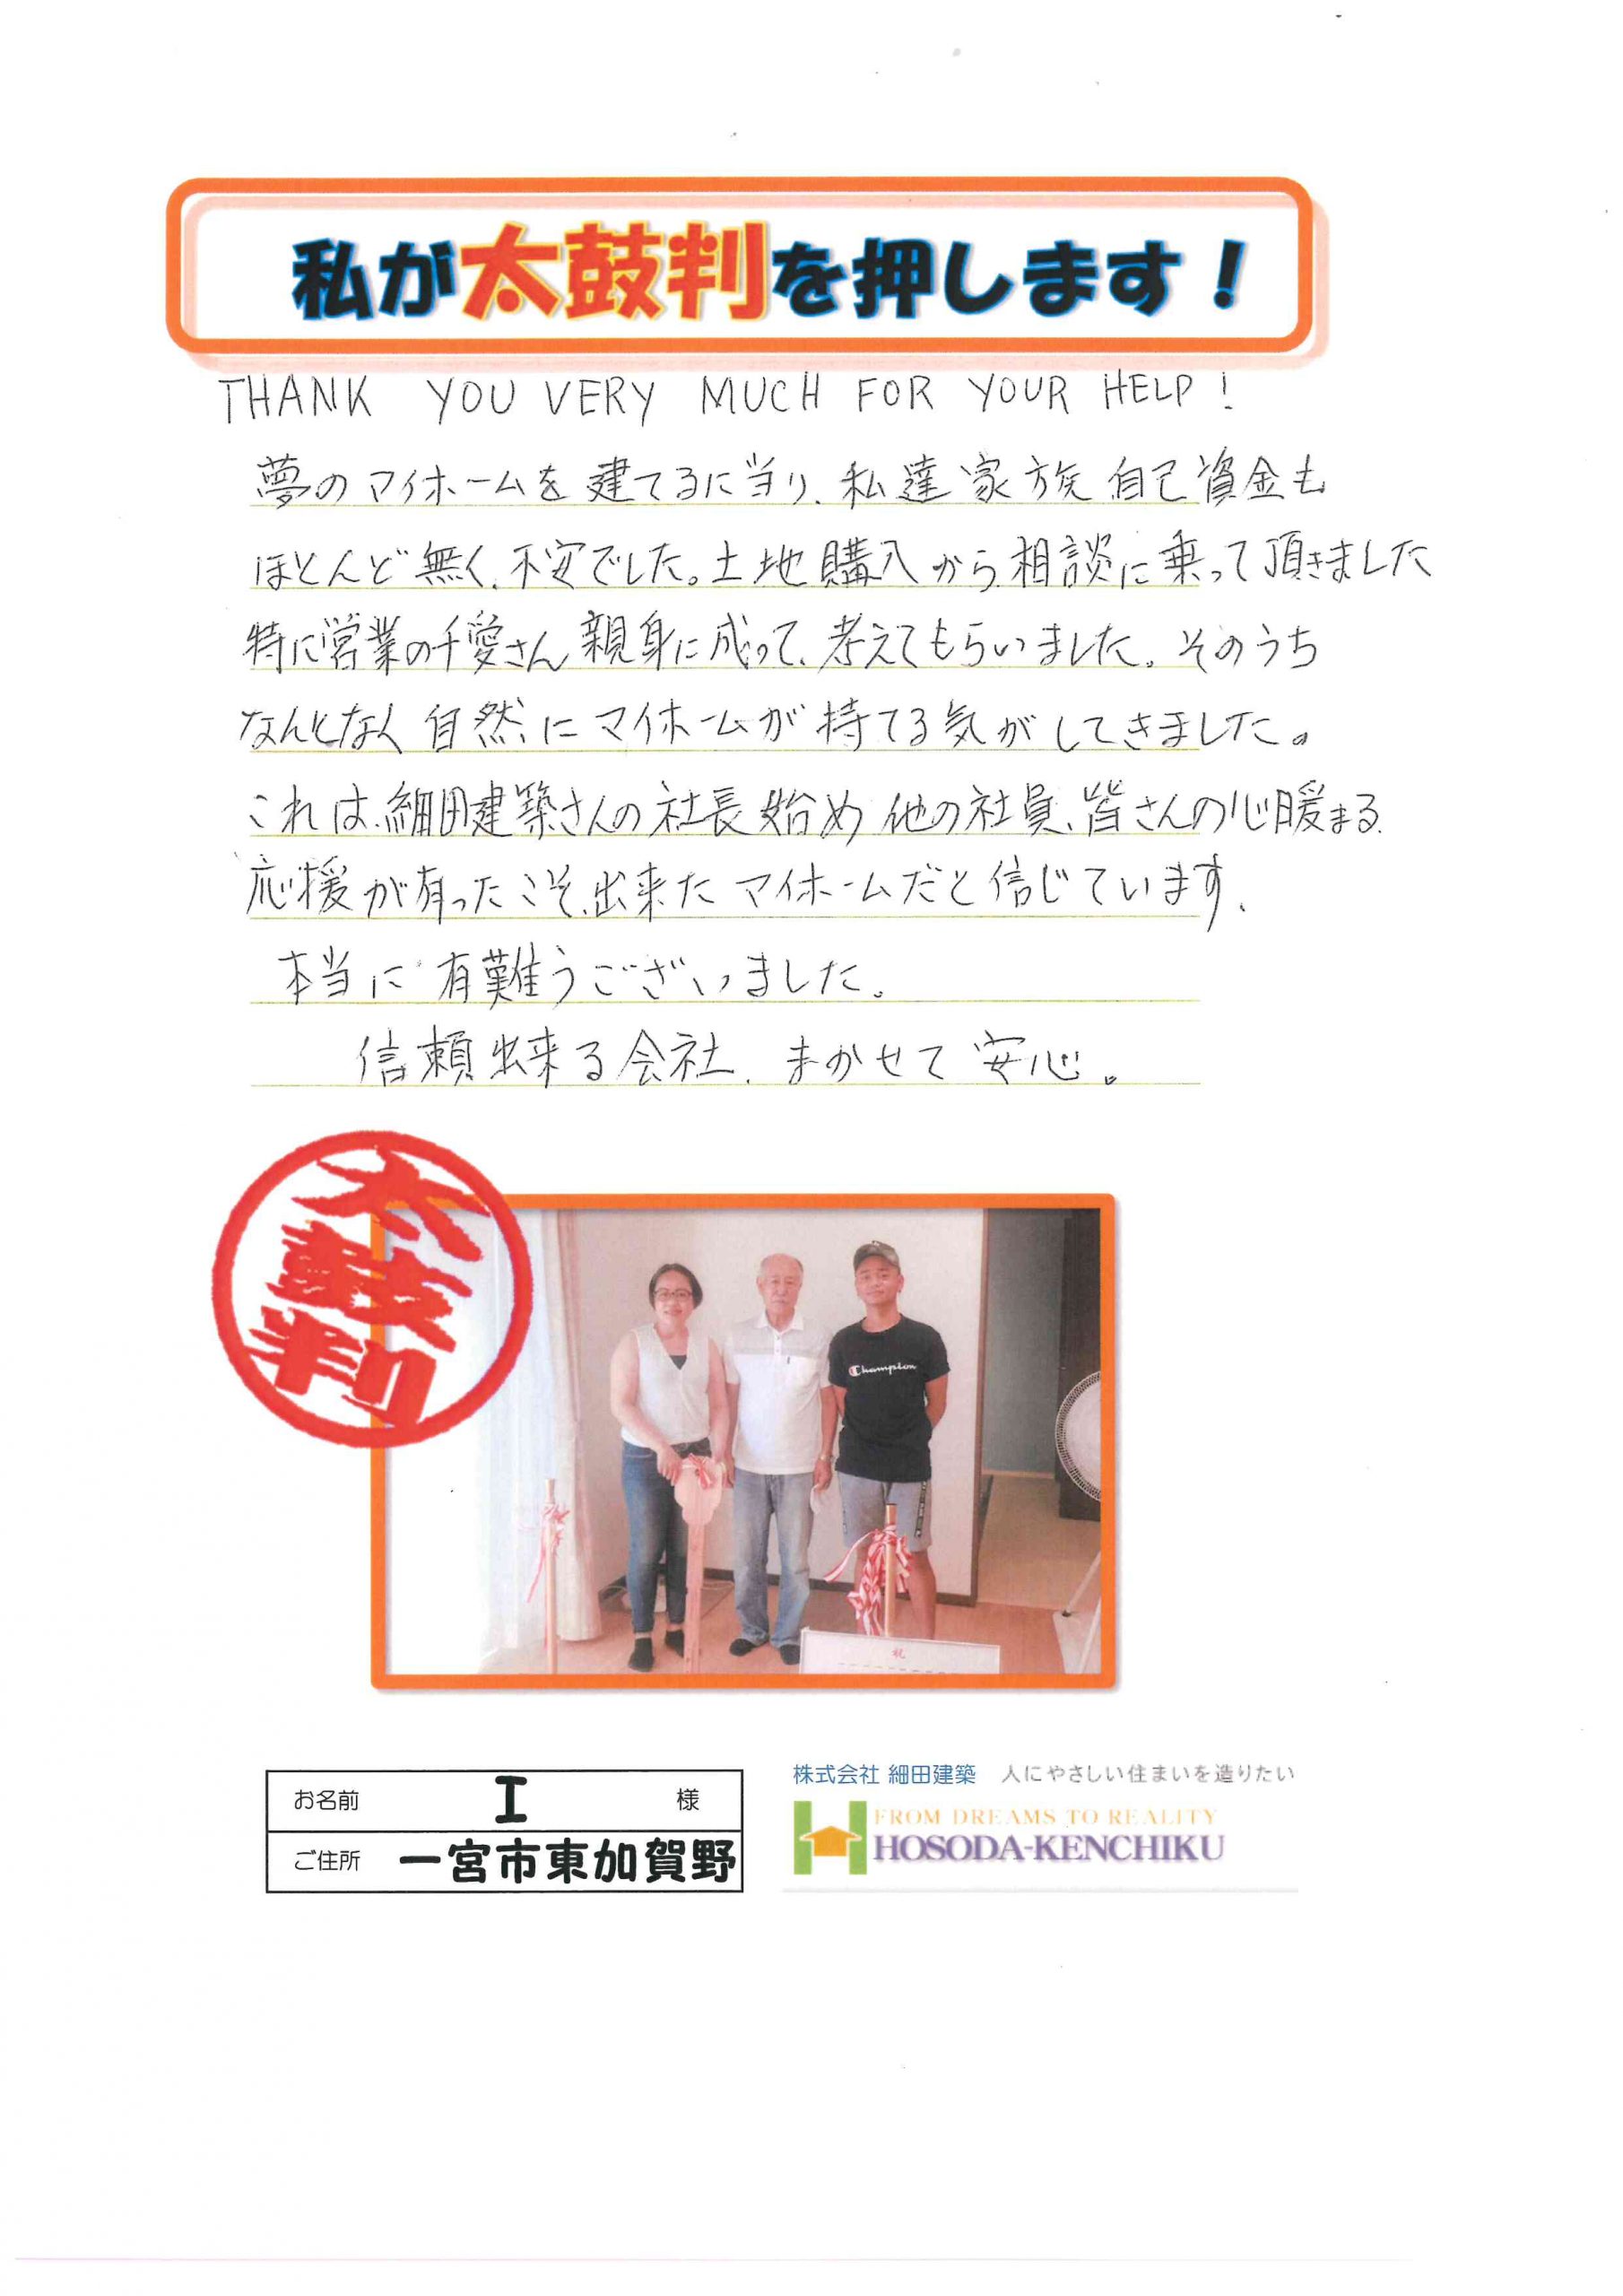 私が太鼓判を押します!
THANK YOU VERY MUCH FOR YOUR HELP!
夢のマイホームを建てるに当り、私達家族自己資金も
ほとんど無く、不安でした。土地購入から、相談に乗って頂きました
特に営業の千愛さん親身に成って、考えてもらいました。そのうち
なんとなく自然にマイホームが持てる気がしてきました。
これは、細田建築さんの社長始め他の社員、皆さんの心暖まる
応援が有ったこそ、出来たマイホームだと信じています。
本当に有難うございました。
信頼出来る会社、まかせて安心。
太鼓判
Champion
祝
お名前 I 様
ご住所 一宮市東加賀野
株式会社 細田建築 人にやさしい住まいを造りたい
FROM DREAMS TO REALITY
HOSODA-KENCHIKU